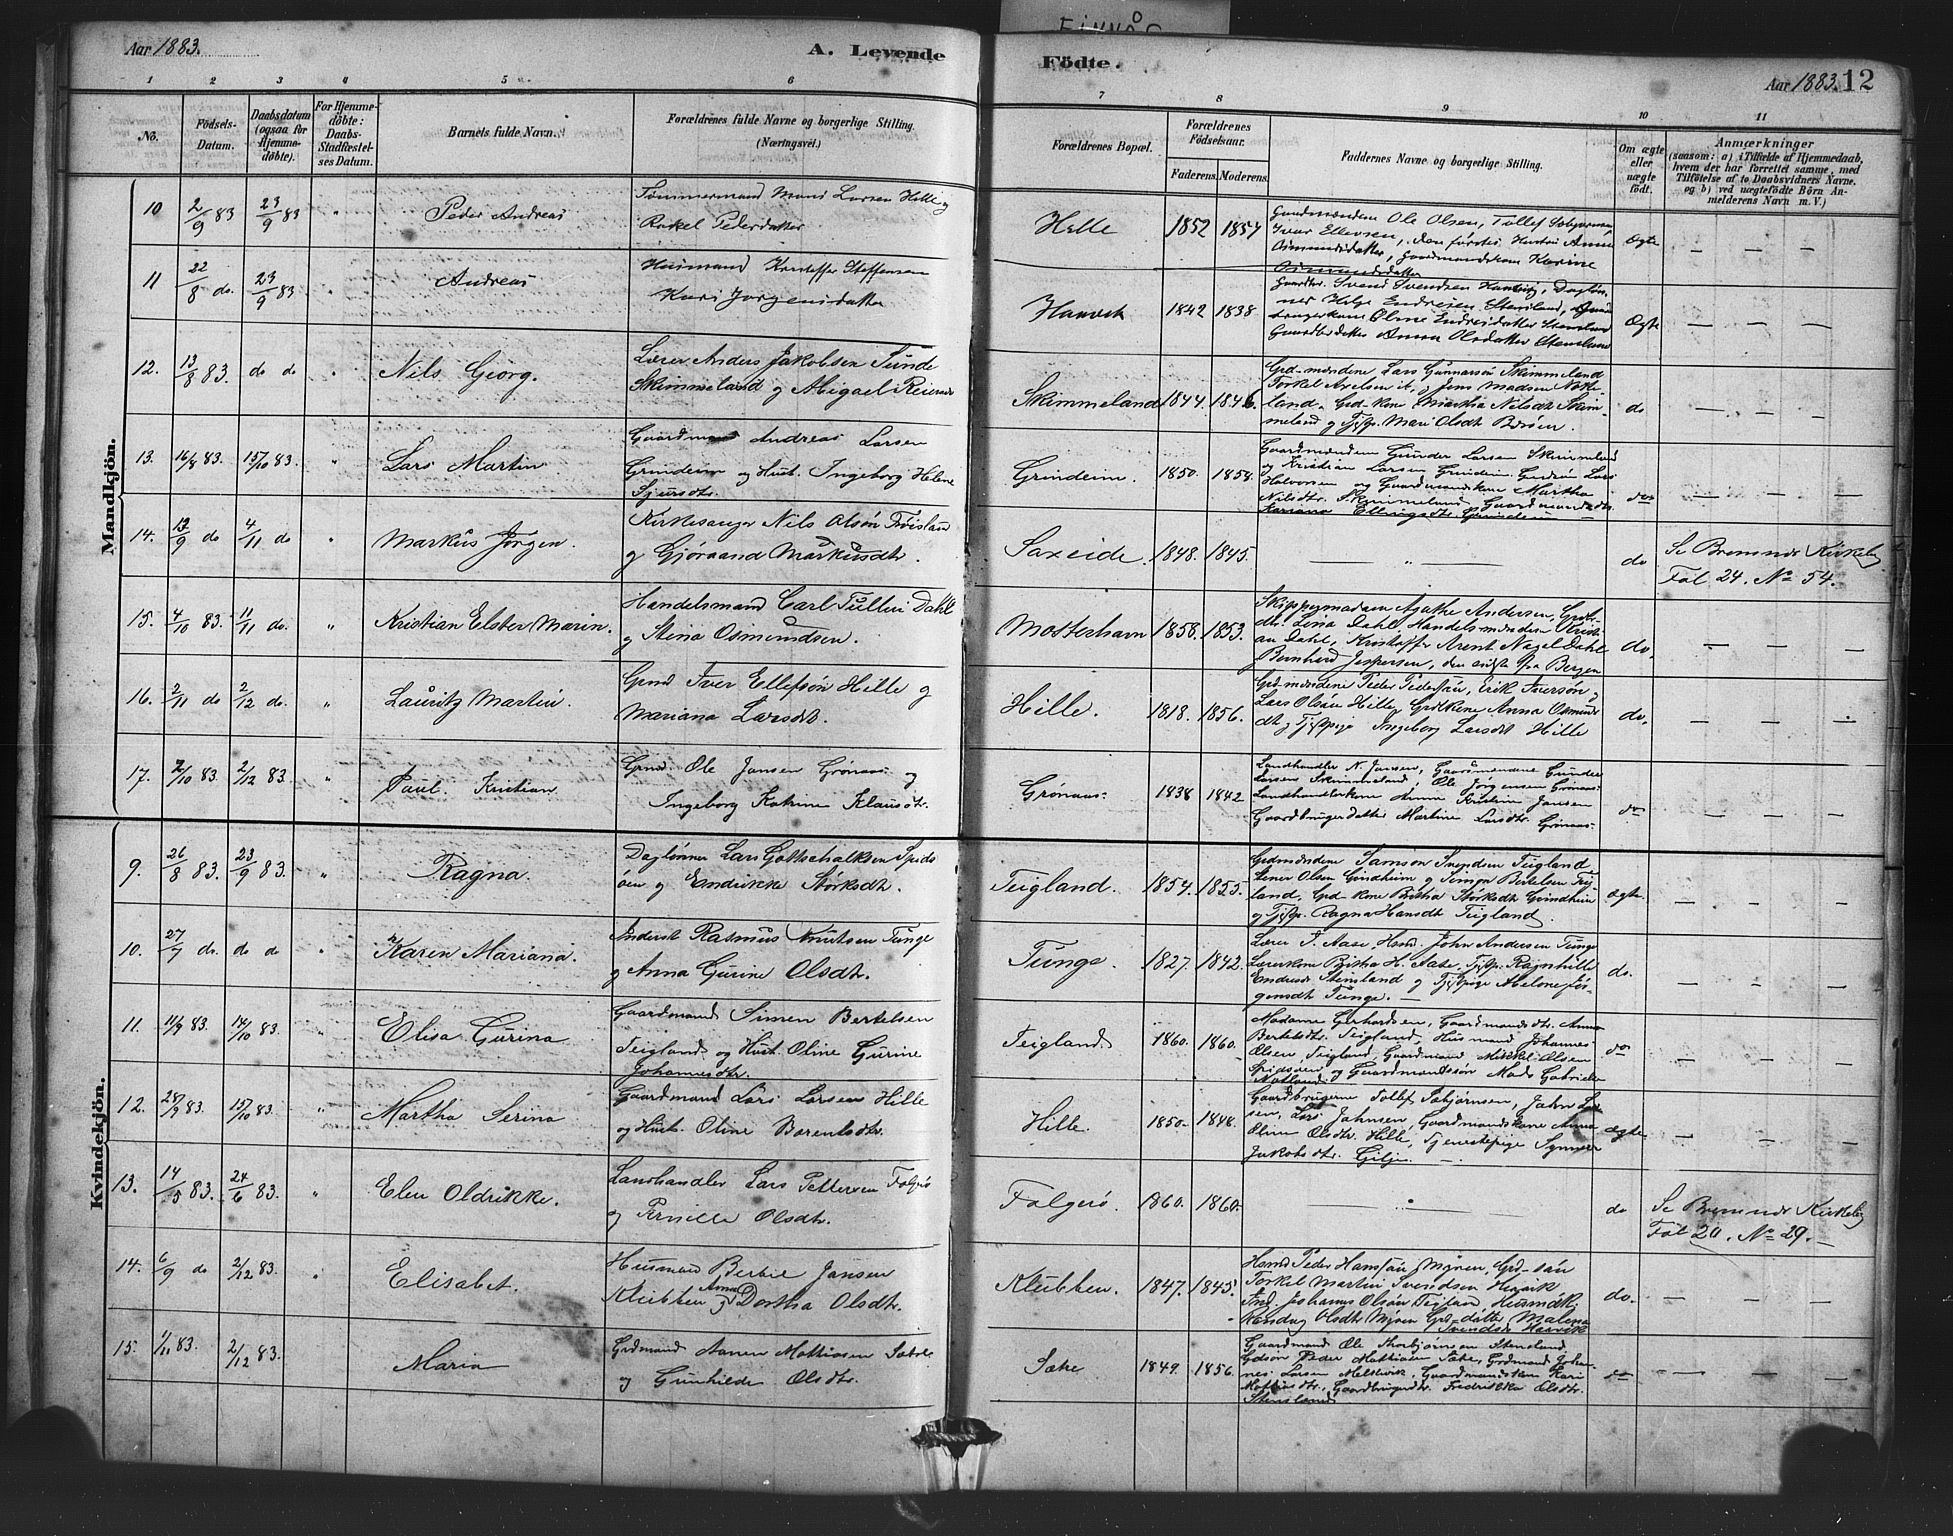 FINNÅS
Aar 1883. A. Levende Födte. Aar 1883. 12
1 2 3 4 5 6 7 8 9 10 11
No.
Födsels-
Datum.
Daabsdatum
(ogsaa for
Hjemme-
döbte).
For Hjemme-
döbte:
Daabs-
Stadfæstel-
ses Datum.
Barnets fulde Navn.
Forældrenes fulde Navne og borgerlige Stilling.
(Næringsvei.)
Forældrenes Bopæl.
Forældrenes
Födselsaar.
Faderens. Moderens.
Faddernes Navne og borgerlige Stilling.
Om ægte
eller
uægte
födt.
Anmærkninger
(saasom: a) i Tilfælde af Hjemmedaab,
hvem der har forrettet samme, med
Tilföielse af to Daabsvidners Navne,
og b) ved uægtefödte Börn An-
melderens Navn m. V.)
Mandkjön.
10 2/9 83 23/9 83 " Peder Andreas
Tømmermand Mons Larsen Hille og
Rakel Pedersdatter
Hille 1852 1854
Gaardmændene Ole Olsen, Tollef
Ivar Ellevsen,
Ægte — — —
11 22/8 do. 23/9 83 " Andreas
Huusmand Kristoffer Steffensen
Kari Jørgensdatter
Haavik 1842 1838
Svend Svendsen
Helge Endresen Stensland,
Anna Olsdatter Stensland
Ægte — — —
12. 13/8 83. do do " Nils Georg.
Lærer Anders Jakobsen Sunde
Skimmeland og Abigael Reiersd
Skimmeland 1844. 1846.
Grd-mændene Lars Gunnarsön Skimmeland
Torkel Axelsen ib, og Jens Madsen Not-
land, Grd-kone Martha Nilsdt Skim-
meland og Tjpg. Mari Olsdt
do — — —
13. 16/8 83. 15/10 83. " Lars Martin
Gaardmand Andreas Larsen
Grindeim og Hust. Ingeborg Helene
Sjursdtr.
Grindeim. 1850. 1854.
Gaardmændene Gunder Larsen Skimmeland
og Kristian Larsen Grindeim. Lars
Halvorsen og Gaardmandskone Martha
Nilsdtr. Skimmeland, Gaardmandsdtr.
Mariana Ellingsdtr. Grindeim
do — — —
14. 13/9 do 4/11 do " Markus Jørgen.
Kirkesanger Nils Olsön
og Gjøraand Markusdtr.
Saxeide. 1848. 1845.
— " — do
Se Bremnes Kirkebog
Fol 24. No 54.
15. 4/10 83. 11/11 do. " Kristian Elster Marin.
Handelsmand Carl Tullin Dahl
og Stina Osmundsen.
Mosterhavn 1858. 1853.
Skippermadam Agathe Andersen,
Lina Dahl, Handelsmændene Kristi-
an Dahl, Kristoffer Arent Nagel Dahl
Bernherd Jespersen, den sidste fra Bergen
do. — — —
16. 2/11 do 2/12 do. " Lauritz Martin.
Grmd Iver Ellefsön Hille og
Mariana Larsdt.
Hille. 1818. 1856.
Grd-mændene Peder Pedersön, Erik Iversön og
Lars Olsön Hille, Grdkone Anna Osmunds
dt og Tjpige Ingeborg Larsdt Hille
do. — — —
17. 2/10 83. 2/12 83. " Paul Kristian.
Grmd. Ole Jansen Grönaas og
Ingeborg Katrine Klausdtr.
Grönaas. 1838 1842
Landhandler N. Jansen, Gaardmændene Gunder
Larsen Skimmeland, Ole Jörgensen Grönaas.
Landhandlerkone Anna Kristine Jansen
Gaardbrugerdatter Martine Larsdtr. Grönaas.
do — — —
Kvindekjön.
9. 26/8 83. 23/9 83. " Ragna.
Daglønner Lars Gottschalksen Spids
öen og Endrikke Störksdt.
Teigland. 1854. 1855.
Grdmændene Samson Svendsen Teigland
Stener Olsen Grindheim og Simon Bertelsen Teig
land, Grd kone Britha Störksdt Grindheim
og Tjpg. Ragna Hansdt Teigland.
Ægte. — — —
10. 27/7 do. do do " Karen Mariana.
Inderst Rasmus Knutsen Tunge
og Anna Gurine Olsdt.
Tunge. 1827. 1842.
Lærer J. Aase, Hsmd. John Andersen Tunge
Lærerkone Britha H. Aase, Tjpg. Ragnhilde
Endresd Stensland og Tjpige Abelone Jör-
gensdt Tunge. —
do. — — —
11. 11/9 83. 14/10 83. Elisa Gurina
Gaardmand Simen Bertelsen
Teigland og Hust. Oline Gurine
Johannesdtr.
Teigland 1860. 1860.
Madame Gerhardsen, Gaardmandsdtr. Anna
Bertelsdtr. Teigland, Husmand Johannes
Olsen Teigland, Gaardmand Mikkel Olsen
Spidsöen og Gaardmandssön Mads Gabriels
Notland
do — — —
12. 28/9 83. 15/10 83. " Martha Serina
Gaardmand Lars Larsen Hille
og Hust. Oline Barentsdtr.
Hille. 1850. 1848.
Gaardbrugerne Tollef Torbjörnsen, John Lar-
sen, Lars Johnsen, Gaardmandskone Anna
Oline Olsdtr. Hille, Tjenestepige Synneva
Jakobsdtr. Gilje. —
Ægte — — —
13. 14/5 83. 24/6 83. " Elen Oldrikke.
Landhandler Lars Pettersen Folgerö
og Pernille Olsdtr.
Folgerö. 1860. 1860.
— " — do
Se Bremnes Kirkebog
Fol 20. No 29. —
14. 6/9 do 2/12 83. " Elisabet.
Husmand Bertel Jansen
Klubben og Anna Dortha Olsdtr.
Klubben. 1847. 1845.
Hsmd Peder Hansön Myren, Grd-sön
Torkel Martin Svendsen Haavik
Ind. Johannes Olsön Teigland, Husmdk.
Olsdtr Myren Grd-datter Malena
Svendsdt Haavik
do. — — —
15. 1/11 83. 2/12 83. Maria
Grdmand Aanen Mathiasen Sæte
og Gunhilde Olsdtr.
Sæte 1849. 1856.
Gaardmand Ole Thorbjörnsen Stensland
Gdsön Peder Mathiasen Sæte, Grdmand Johan-
nes Larsen Melkevik, Gaardmandskone Kari
Mathisdtr., Gaardbrugerdtr. Fredrikke Olsdtr.
Stensland
do — — —